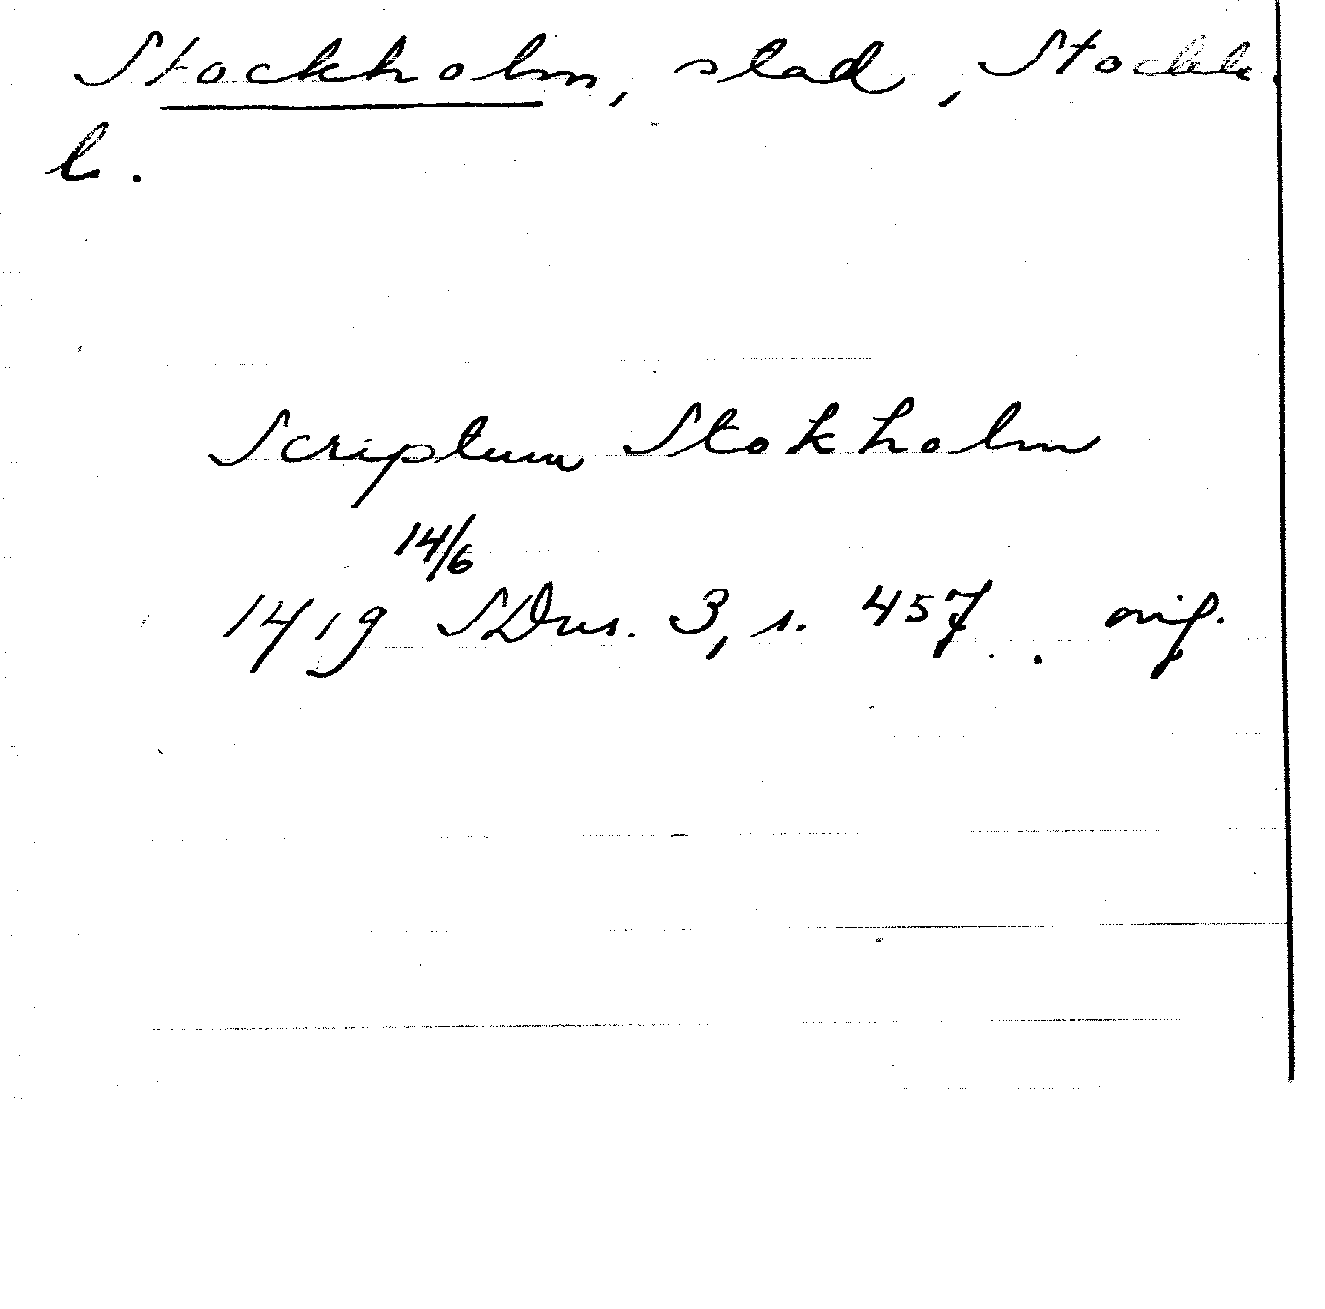 Stockholm, stad, Stockh.
l.
Scriptum Stokholm
14/6
1419 SDns. 3, s. 457. orig.